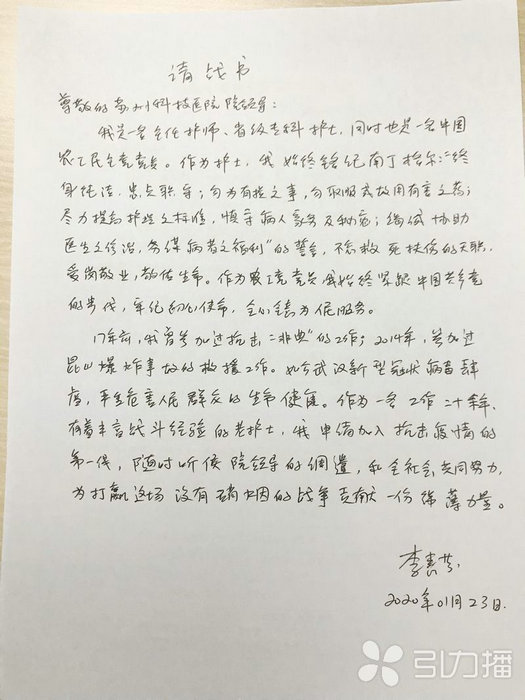 请战书
尊敬的苏州科技医院院领导：
我是一名主任护师、省级专科护士，同时也是一名中国
农工民主党党员。作为护士，我始终铭记南丁格尔“终
身纯洁，忠贞职守；勿为有损之事，勿取服或故用有害之药；
尽力提高护理之标准，慎守病人家务及秘密；竭诚协助
医生之诊治，务谋病者之福利”的誓言，不忘救死扶伤的天职，
爱岗敬业，敬佑生命。作为农工党党员，我始终紧跟中国共产党
的步伐，牢记初心使命，全心全意为人民服务。
17年前，我曾参加过抗击“非典”的工作；2014年，参加过
昆山爆炸事故的救援工作。如今武汉新型冠状病毒肆
虐，严重危害人民群众的生命健康。作为一名工作二十余年、
有着丰富战斗经验的老护士，我申请加入抗击疫情的
第一线，随时听候院领导的调遣，和全社会共同努力，
为打赢这场没有硝烟的战争贡献一份绵薄力量。
李
2020年01月23日.
引力播